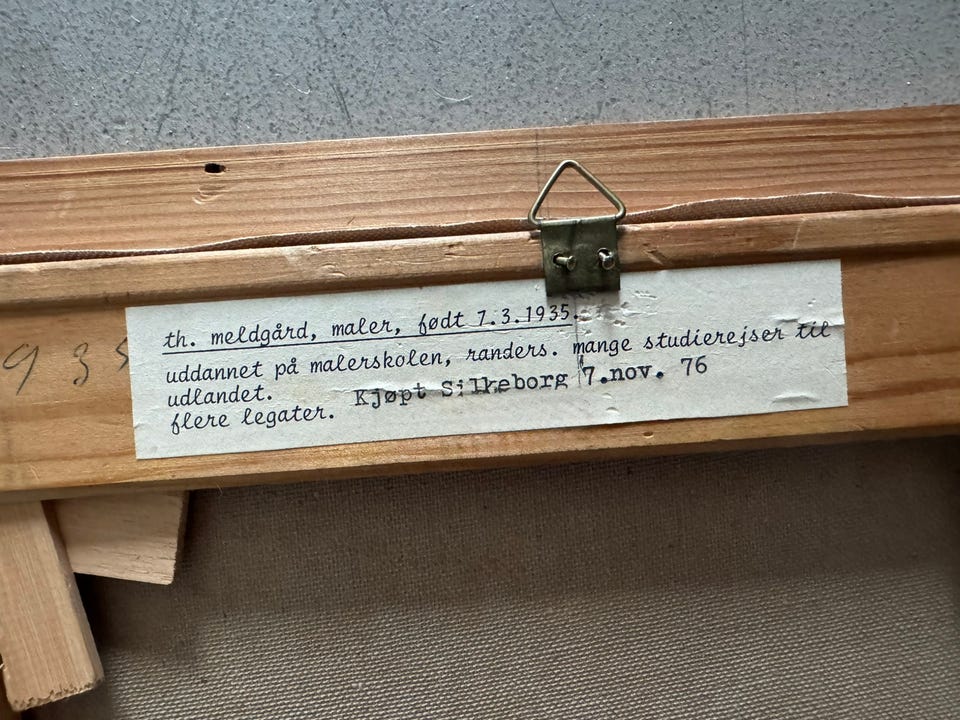 th. meldgård, maler, født 7.3.1935.
uddannet på malerskolen, randers. mange studierejser til
udlandet.
flere legater. Kjøpt Silkeborg 7.nov. 76
935